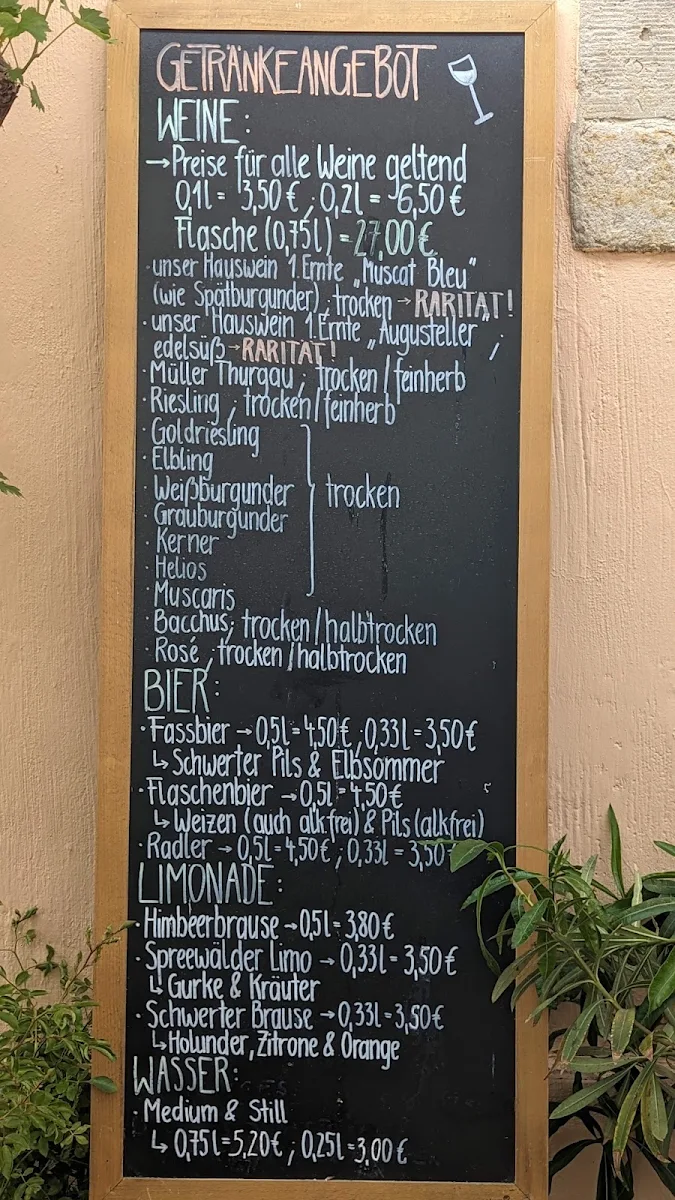 GETRÄNKEANGEBOT
WEINE:
→Preise für alle Weine geltend
0,1l = 3,50€ ; 0,2l = 6,50€
Flasche (0,75l) = 27,00€
·unser Hauswein 1. Ernte „Muscat Bleu"
(wie Spätburgunder) ; trocken → RARITÄT!
·unser Hauswein 1. Ernte „Augusteller" ;
edelsüß → RARITÄT!
·Müller Thurgau ; trocken / feinherb
·Riesling ; trocken / feinherb
·Goldriesling
·Elbling
·Weißburgunder } trocken
·Grauburgunder
·Kerner
·Helios
·Muscaris
·Bacchus; trocken / halbtrocken
·Rosé ; trocken / halbtrocken
BIER:
·Fassbier → 0,5l = 4,50€ ; 0,33l = 3,50€
↳ Schwerter Pils & Elbsommer
·Flaschenbier → 0,5l = 4,50€
↳ Weizen (auch alkfrei) & Pils (alkfrei)
·Radler → 0,5l = 4,50€ ; 0,33l = 3,50
LIMONADE:
·Himbeerbrause → 0,5l = 3,80€
·Spreewälder Limo → 0,33l = 3,50€
↳ Gurke & Kräuter
·Schwerter Brause → 0,33l = 3,50€
↳ Holunder, Zitrone & Orange
WASSER:
·Medium & Still
↳ 0,75l = 5,20€ ; 0,25l = 3,00€